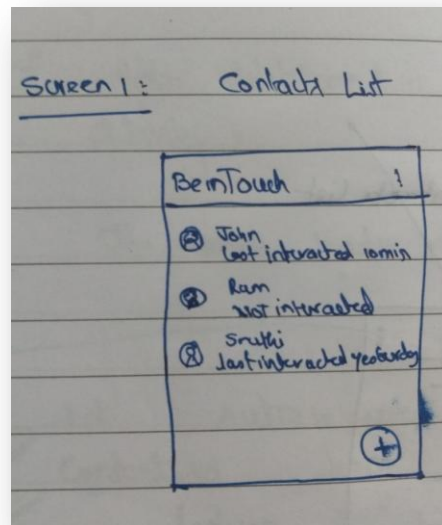 Screen 1:    Contacts List
BeinTouch    ⋮
John
last interacted 10min
Ram
Not interacted
Sruthi
last interacted yesterday
+